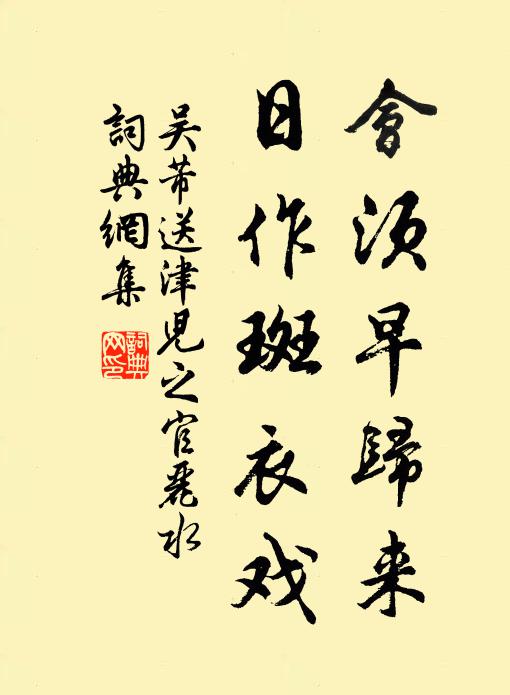 會須早歸来
日作斑衣戏
吴芾送津兒之官麗水
詞典網集
詞典网印